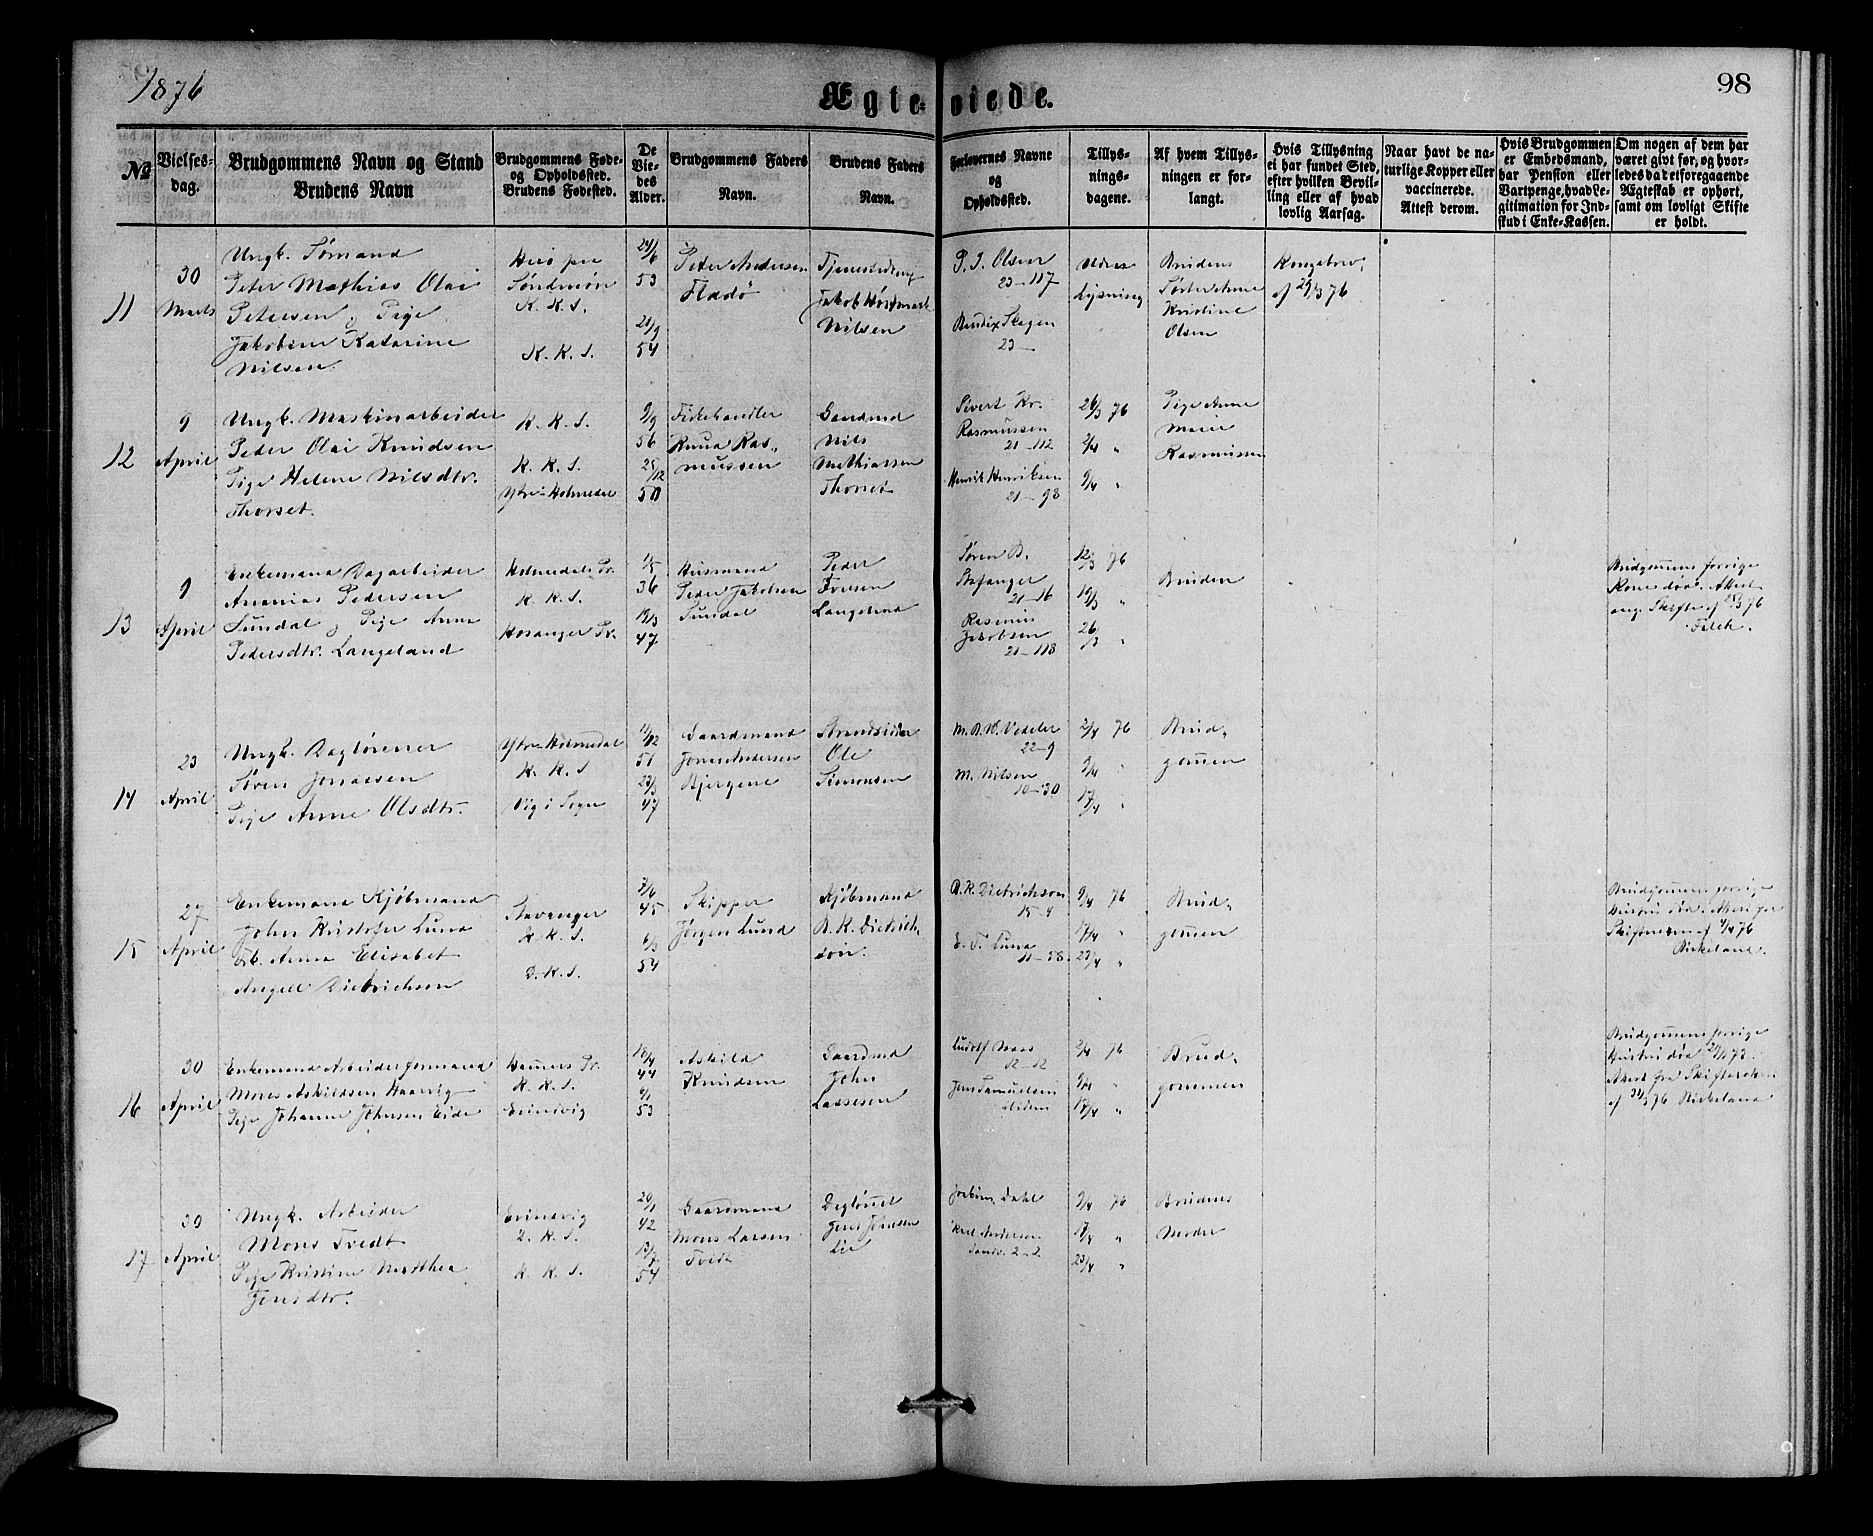 1876
Ægteviede.
98
№
Vielses-
dag.
Brudgommens Navn og Stand
Brudens Navn
Brudgommens Føde-
og Opholdssted.
Brudens Fødested.
De
Vie-
des
Alder.
Brudgommens Faders
Navn.
Brudens Faders
Navn.
Forlovernes Navne
og
Opholdssted.
Tillys-
nings-
dagene.
Af hvem Tillys-
ningen er for-
langt.
Hvis Tillysning
ei har fundet Sted,
efter hvilken Bevil-
ling eller af hvad
lovlig Aarsag.
Naar havt de na-
turlige Kopper eller
vaccinerede.
Attest derom.
Hvis Brudgommen
er Embedsmand,
har Pension eller
Vartpenge, hvad Le-
gitimation for Ind-
skud i Enke-Kassen.
Om nogen af dem har
været givt før, og hvor-
ledes da det foregaaende
Ægteskab er ophørt,
samt om lovligt Skifte
er holdt.
11
30
Marts
Ungk. Sømand
Peter Mathias Olai
Petersen & Pige
Jakobine Katarine
Nilsen.
Herø paa
Søndmør
K. K. S.
K. K. S.
24/6
53
21/9
54
Peter Andersen
Flaadø
Tjenestedreng
Jakob
Nilsen
P. J. Olsen
23-117
Bendix Skagen
23-
Uden
Lysning
Brudens
Søster Anne
Kristine
Olsen
Kongebrev
af 29/3 76
12
9
April
Ungk. Maskinarbeider
Peder Olai Knudsen
Pige Helene Nilsdtr.
Thorset.
K. K. S.
K. K. S.
Ytre-Holmedal
9/9
56
25/12
50
Fiskehandler
Knud Ras-
mussen
Gaardmd
Nils
Mathiassen
Thorset
Sivert Kr.
Rasmussen
21-112
Henrik Henriksen
21-98
26/3 76
2/4 "
9/4 "
Pige Anne
Marie
Rasmussen
13
9
April
Enkemand Dagarbeider
Ananias Pedersen
Sundal & Pige Anna
Pedersdtr. Langeland
Holmedals Pr.
K. K. S.
Hosanger Pr.
1/5
36
19/3
47
Husmand
Peder Jakobsen
Sundal
Peder
Iversen
Langeland
Søren B.
Stafanger
21-16
Rasmus
Jakobsen
21-118
12/3 76
19/3 "
26/3 "
Bruden
Brudgommens forrige
Kone død. Attest
ang. Skifte af 28/3 76
14
23
April
Ungk. Daglønner
Søren Jonassen
Pige Anne Olsdtr.
Ytre-Holmedal
K. K. S
Vig i Sogn
11/12
51
23/3
47
Gaardmand
Jonas Andersen
Bjergene
Strandsidder
Ole
Simonsen
M. B. W. Vedeler
22-9
M. Nilsen
10-30
2/4 76
9/4 "
17/4 "
Brud-
gommen
15
27
April
Enkemand Kjøbmand
John Kristofer Lund
Frk. Anna Elisabet
Angell Dietrichson
Stavanger
K. K. S.
D. K. S.
7/6
45
6/3
54
Skipper
Jørgen Lund
Kjøbmand
B. K. Dietrich-
son.
B. K. Dietrichson
15-4
E. F. Lund
11-58
9/4 76
17/4 "
23/4 "
Brud-
gommen
Brudgommens forrige
Hustru død. Attest fra
Skifteretten af 4/4 76
Birkeland.
16
30
April
Enkemand Arbeidsformand
Mons Askildsen Haarvig
Pige Johanne Johnsen Eide
Hammers Pr.
K. K. S.
Evindvig
18/4
44
9/1
53
Askild
Knudsen
Gaardmd
John
Lassesen
Ludolf Maas
12-12
Jens Samuelsen
ibidem
2/4 76
9/4 "
17/4 "
Brud-
gommen
Brudgommens forrige
Hustru død 29/1 73.
Attest fra Skifteretten
af 31/3 76 Birkeland
17
30
April
Ungk. Arbeider
Mons Tvedt
Pige Kristine Matthea
Jensdtr.
Evindvig
D. K. S.
K. K. S.
20/1
42
13/7
54
Gaardmand
Mons Larsen
Tvedt
Dagløner
Jens Johnsen
Lie
Joakim Dahl
Karl Andersen
Sandv. 2-2
9/4 76
17/4 "
23/4 "
Brudens
Moder